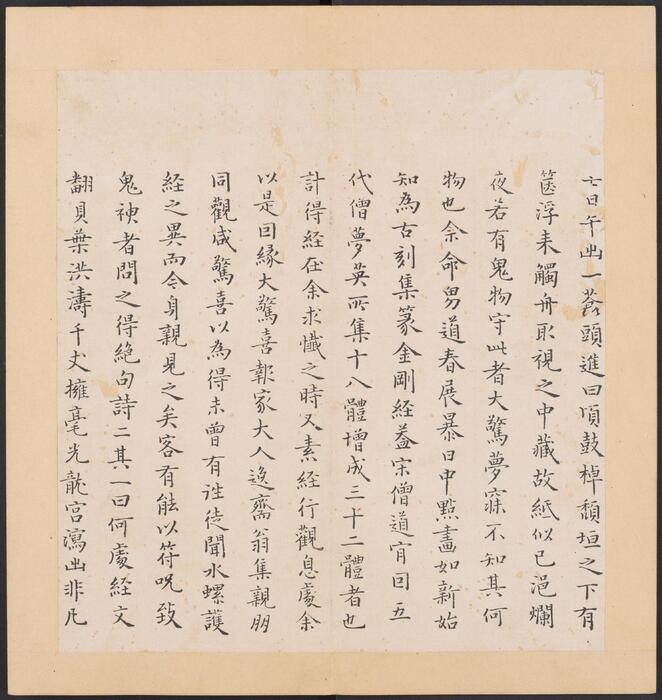 七日午出一蒼頭進曰頃鼓棹頹垣之下有
篋浮来觸舟取視之中藏故紙似已浥爛
夜若有鬼物守此者大驚夢寐不知其何
物也余命男道春展暴日中點畫如新始
知為古刻集篆金剛経葢宋僧道肎回五
代僧夢英所集十八體增成三十二體者也
計得経在余求懺之時又素経行觀息處余
以是回緣大驚喜報家大人逸齋翁集親朋
同觀咸驚喜以為得未曾有詫徒聞水螺護
経之異而今身親見之矣客有能以符呪致
鬼神者問之得絶句詩二其一曰何處経文
翻貝葉洪濤千丈擁毫光龍宮瀉出非凡